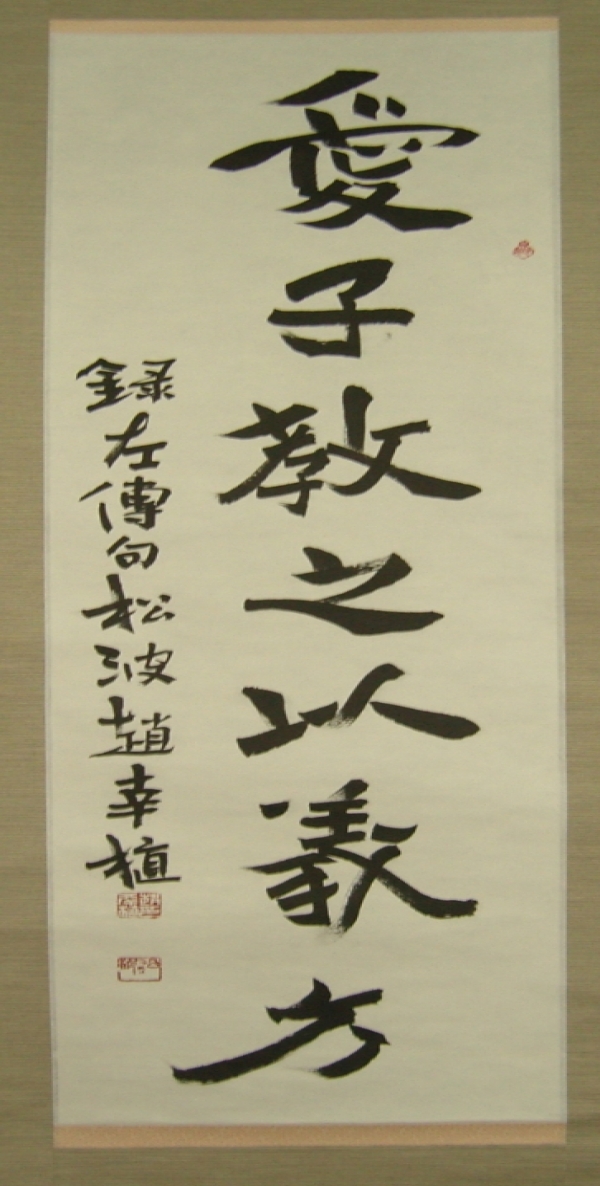 愛子教之以義方
録左傳句松波趙幸植